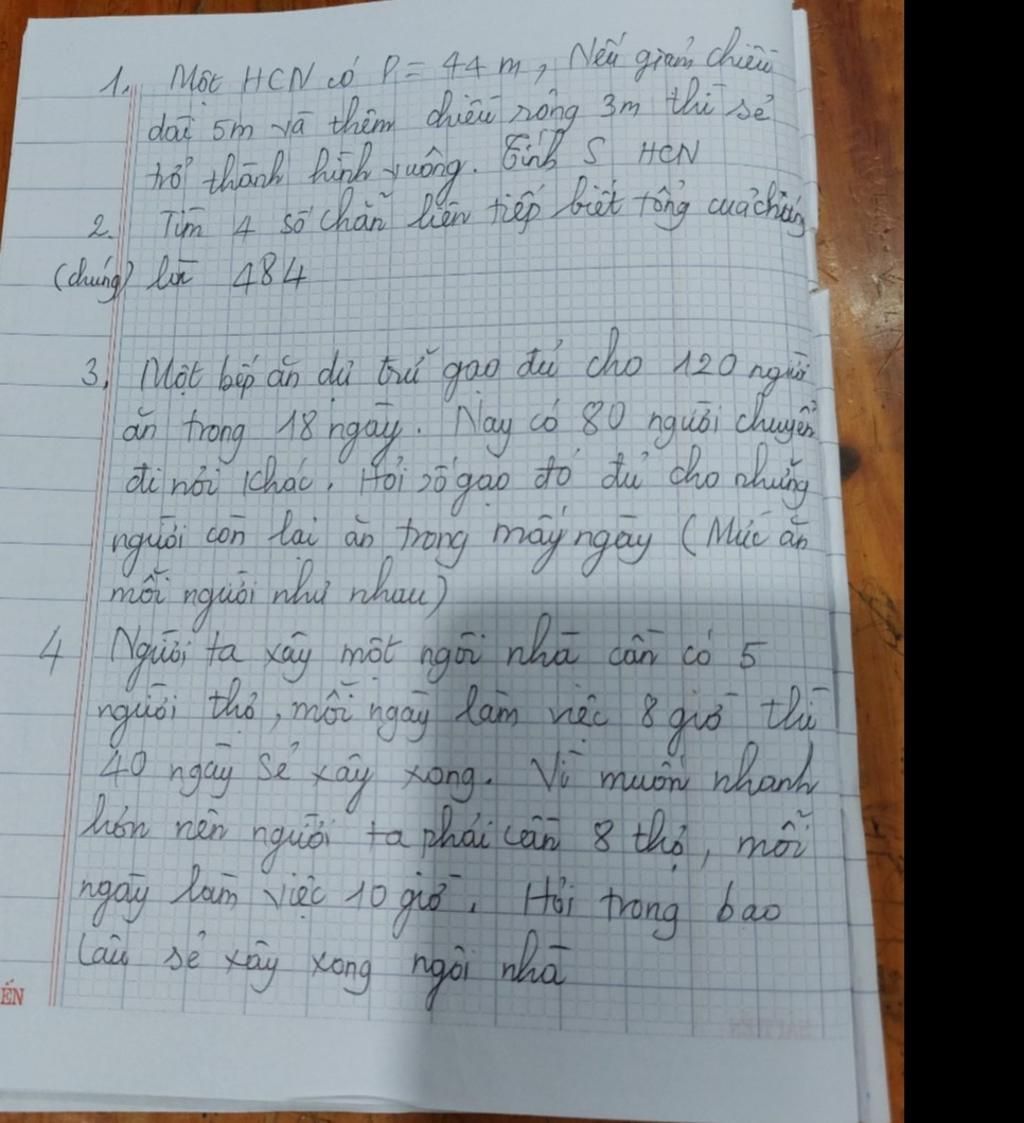 1. Một HCN có P = 44 m, Nếu giảm chiều
dài 5m và thêm chiều rộng 3m thì sẽ
trở thành hình vuông. Tính S HCN
2. Tìm 4 số chẵn liên tiếp biết tổng của chúng
(chúng) là 484
3, Một bếp ăn dự trữ gạo đủ cho 120 người
ăn trong 18 ngày. Nay có 80 người chuyển
đi nơi khác. Hỏi số gạo đó đủ cho những
người còn lại ăn trong mấy ngày (Mức ăn
mỗi người như nhau)
4 Người ta xây một ngôi nhà cần có 5
người thợ, mỗi ngày làm việc 8 giờ thì
40 ngày sẽ xây xong. Vì muốn nhanh
hơn nên người ta phải cần 8 thợ, mỗi
ngày làm việc 10 giờ. Hỏi trong bao
lâu sẽ xây xong ngôi nhà
ẾN